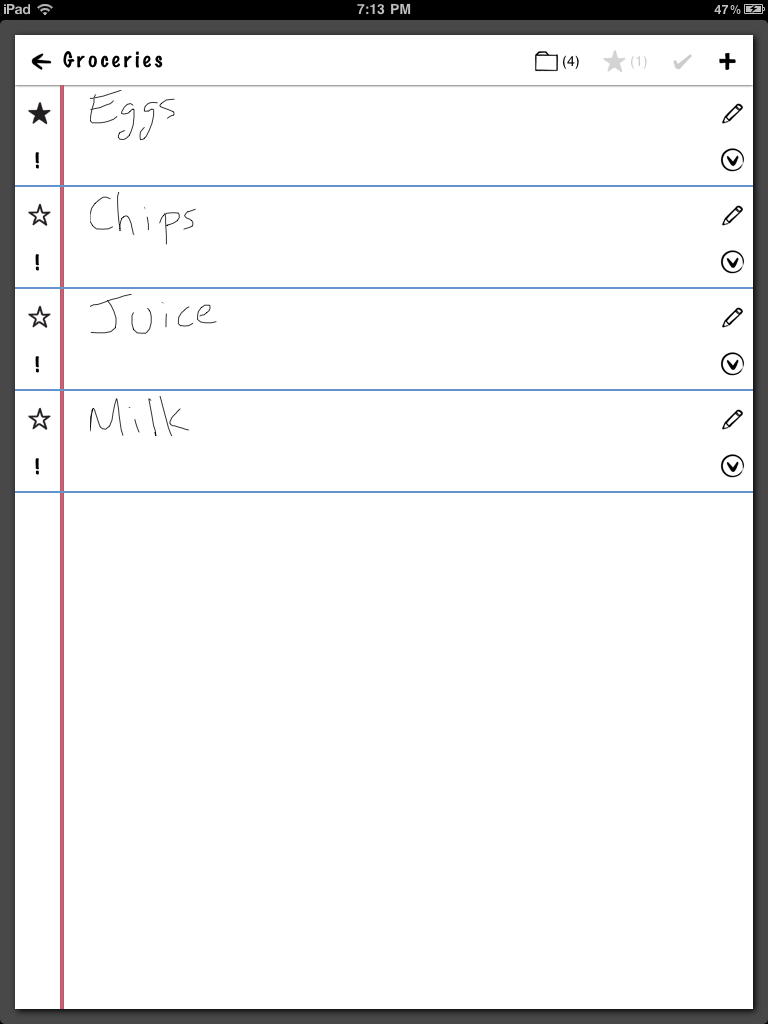 iPad 7:13 PM 47%
Groceries (4) (1)
Eggs
!
Chips
!
Juice
!
Milk
!